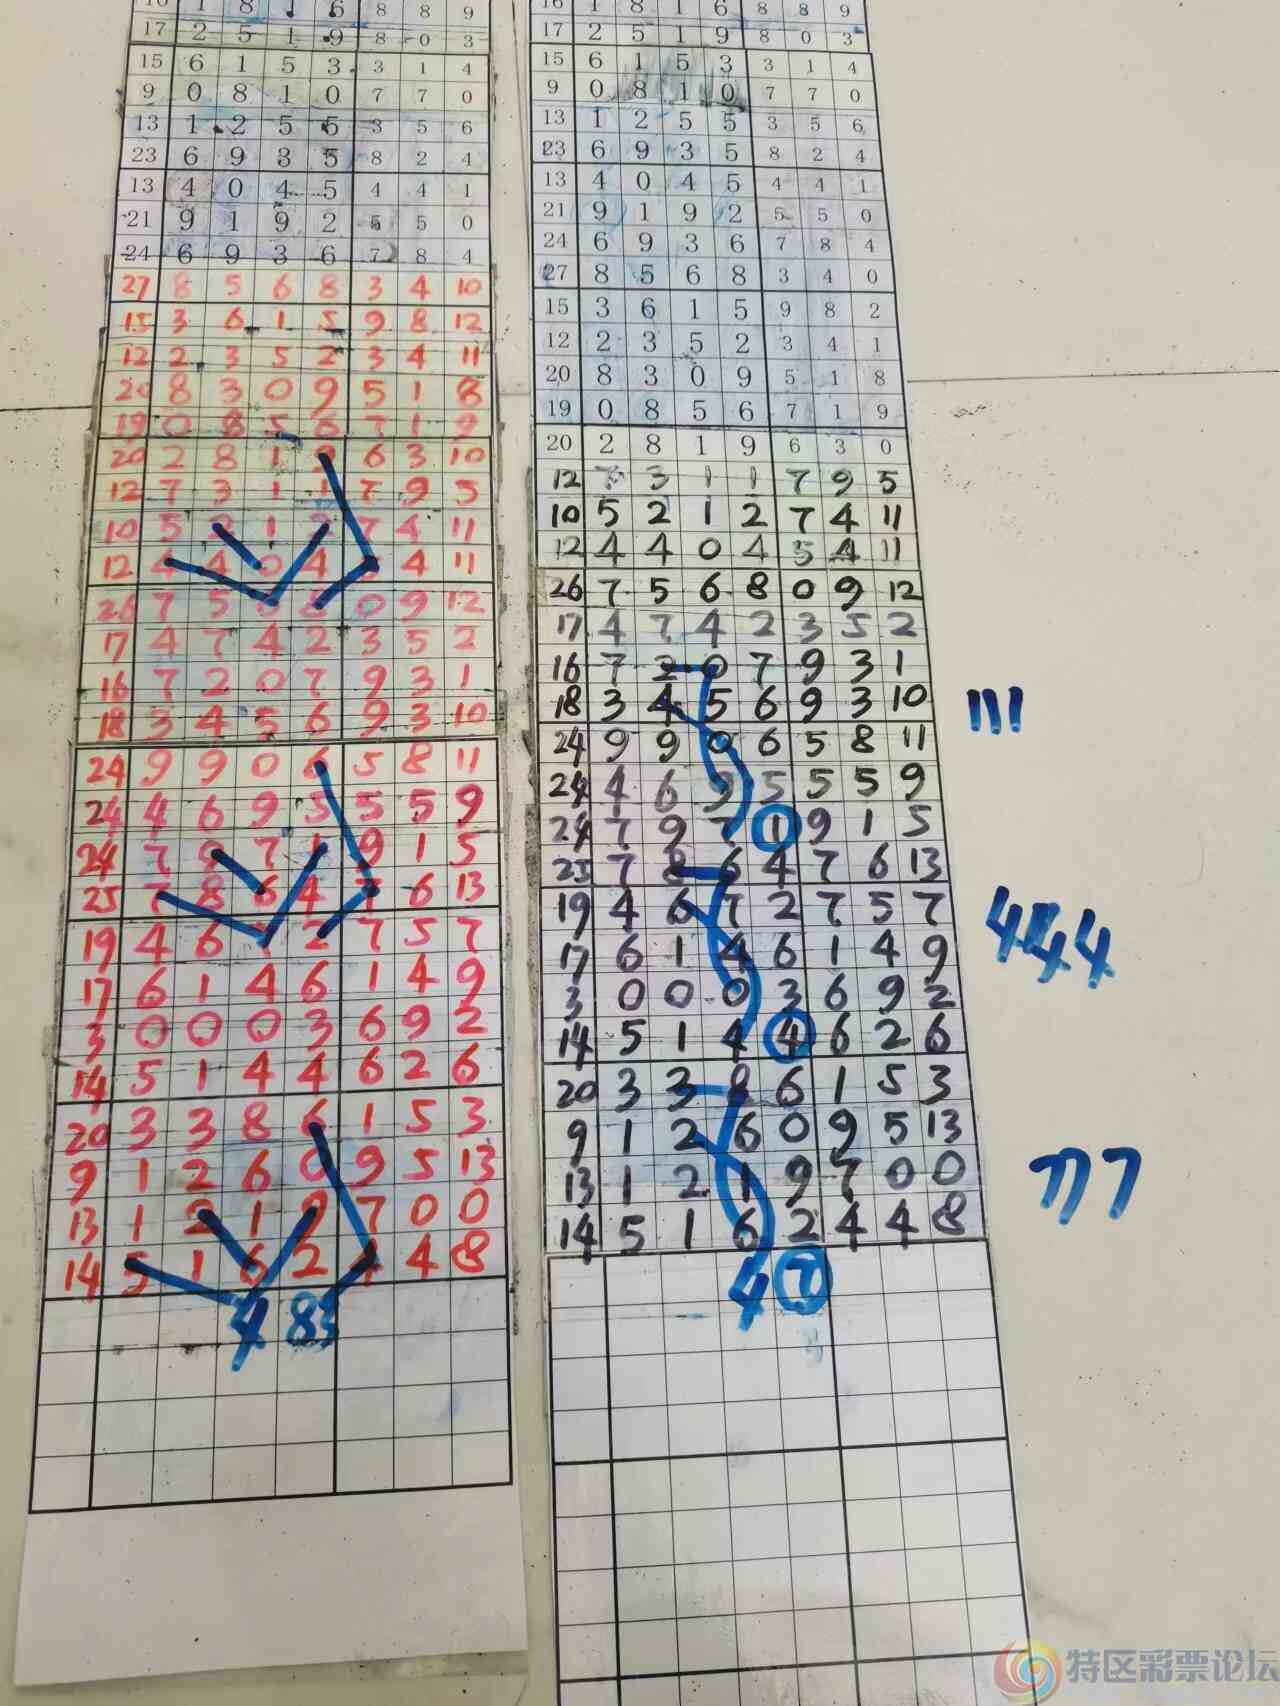 16 1 8 1 6 8 8 9
17 2 5 1 9 8 0 3
15 6 1 5 3 3 1 4
9 0 8 1 0 7 7 0
13 1 2 5 5 3 5 6
23 6 9 3 5 8 2 4
13 4 0 4 5 4 4 1
21 9 1 9 2 5 5 0
24 6 9 3 6 7 8 4
27 8 5 6 8 3 4 10
15 3 6 1 5 9 8 12
12 2 3 5 2 3 4 11
20 8 3 0 9 5 1 8
19 0 8 5 6 7 1 9
20 2 8 1 9 6 3 10
12 7 3 1 1 7 9 5
10 5 2 1 2 7 4 11
12 4 4 0 4 5 4 11
26 7 5 6 8 0 9 12
17 4 7 4 2 3 5 2
16 7 2 0 7 9 3 1
18 3 4 5 6 9 3 10
24 9 9 0 6 5 8 11
24 4 6 9 5 5 5 9
24 7 9 7 1 9 1 5
25 7 8 6 4 7 6 13
19 4 6 7 2 7 5 7
17 6 1 4 6 1 4 9
3 0 0 0 3 6 9 2
14 5 1 4 4 6 2 6
20 3 3 8 6 1 5 3
9 1 2 6 0 9 5 13
13 1 2 1 9 7 0 0
14 5 1 6 2 4 4 8
4 83
16 1 8 1 6 8 8 9
17 2 5 1 9 8 0 3
15 6 1 5 3 3 1 4
9 0 8 1 0 7 7 0
13 1 2 5 5 3 5 6
23 6 9 3 5 8 2 4
13 4 0 4 5 4 4 1
21 9 1 9 2 5 5 0
24 6 9 3 6 7 8 4
27 8 5 6 8 3 4 0
15 3 6 1 5 9 8 2
12 2 3 5 2 3 4 1
20 8 3 0 9 5 1 8
19 0 8 5 6 7 1 9
20 2 8 1 9 6 3 0
12 7 3 1 1 7 9 5
10 5 2 1 2 7 4 11
12 4 4 0 4 5 4 11
26 7 5 6 8 0 9 12
17 4 7 4 2 3 5 2
16 7 2 0 7 9 3 1
18 3 4 5 6 9 3 10
24 9 9 0 6 5 8 11
24 4 6 9 5 5 5 9
24 7 9 7 1 9 1 5
25 7 8 6 4 7 6 13
19 4 6 7 2 7 5 7
17 6 1 4 6 1 4 9
3 0 0 0 3 6 9 2
14 5 1 4 4 6 2 6
20 3 3 8 6 1 5 3
9 1 2 6 0 9 5 13
13 1 2 1 9 7 0 0
14 5 1 6 2 4 4 8
4 7
111
444
777
特区彩票论坛